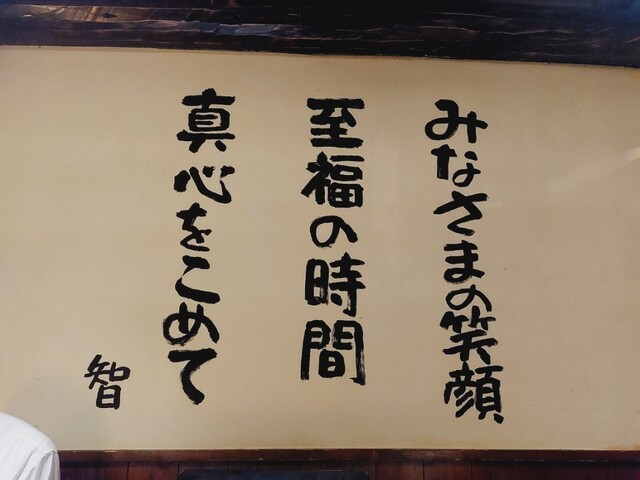 みなさまの笑顔
至福の時間
真心をこめて
智